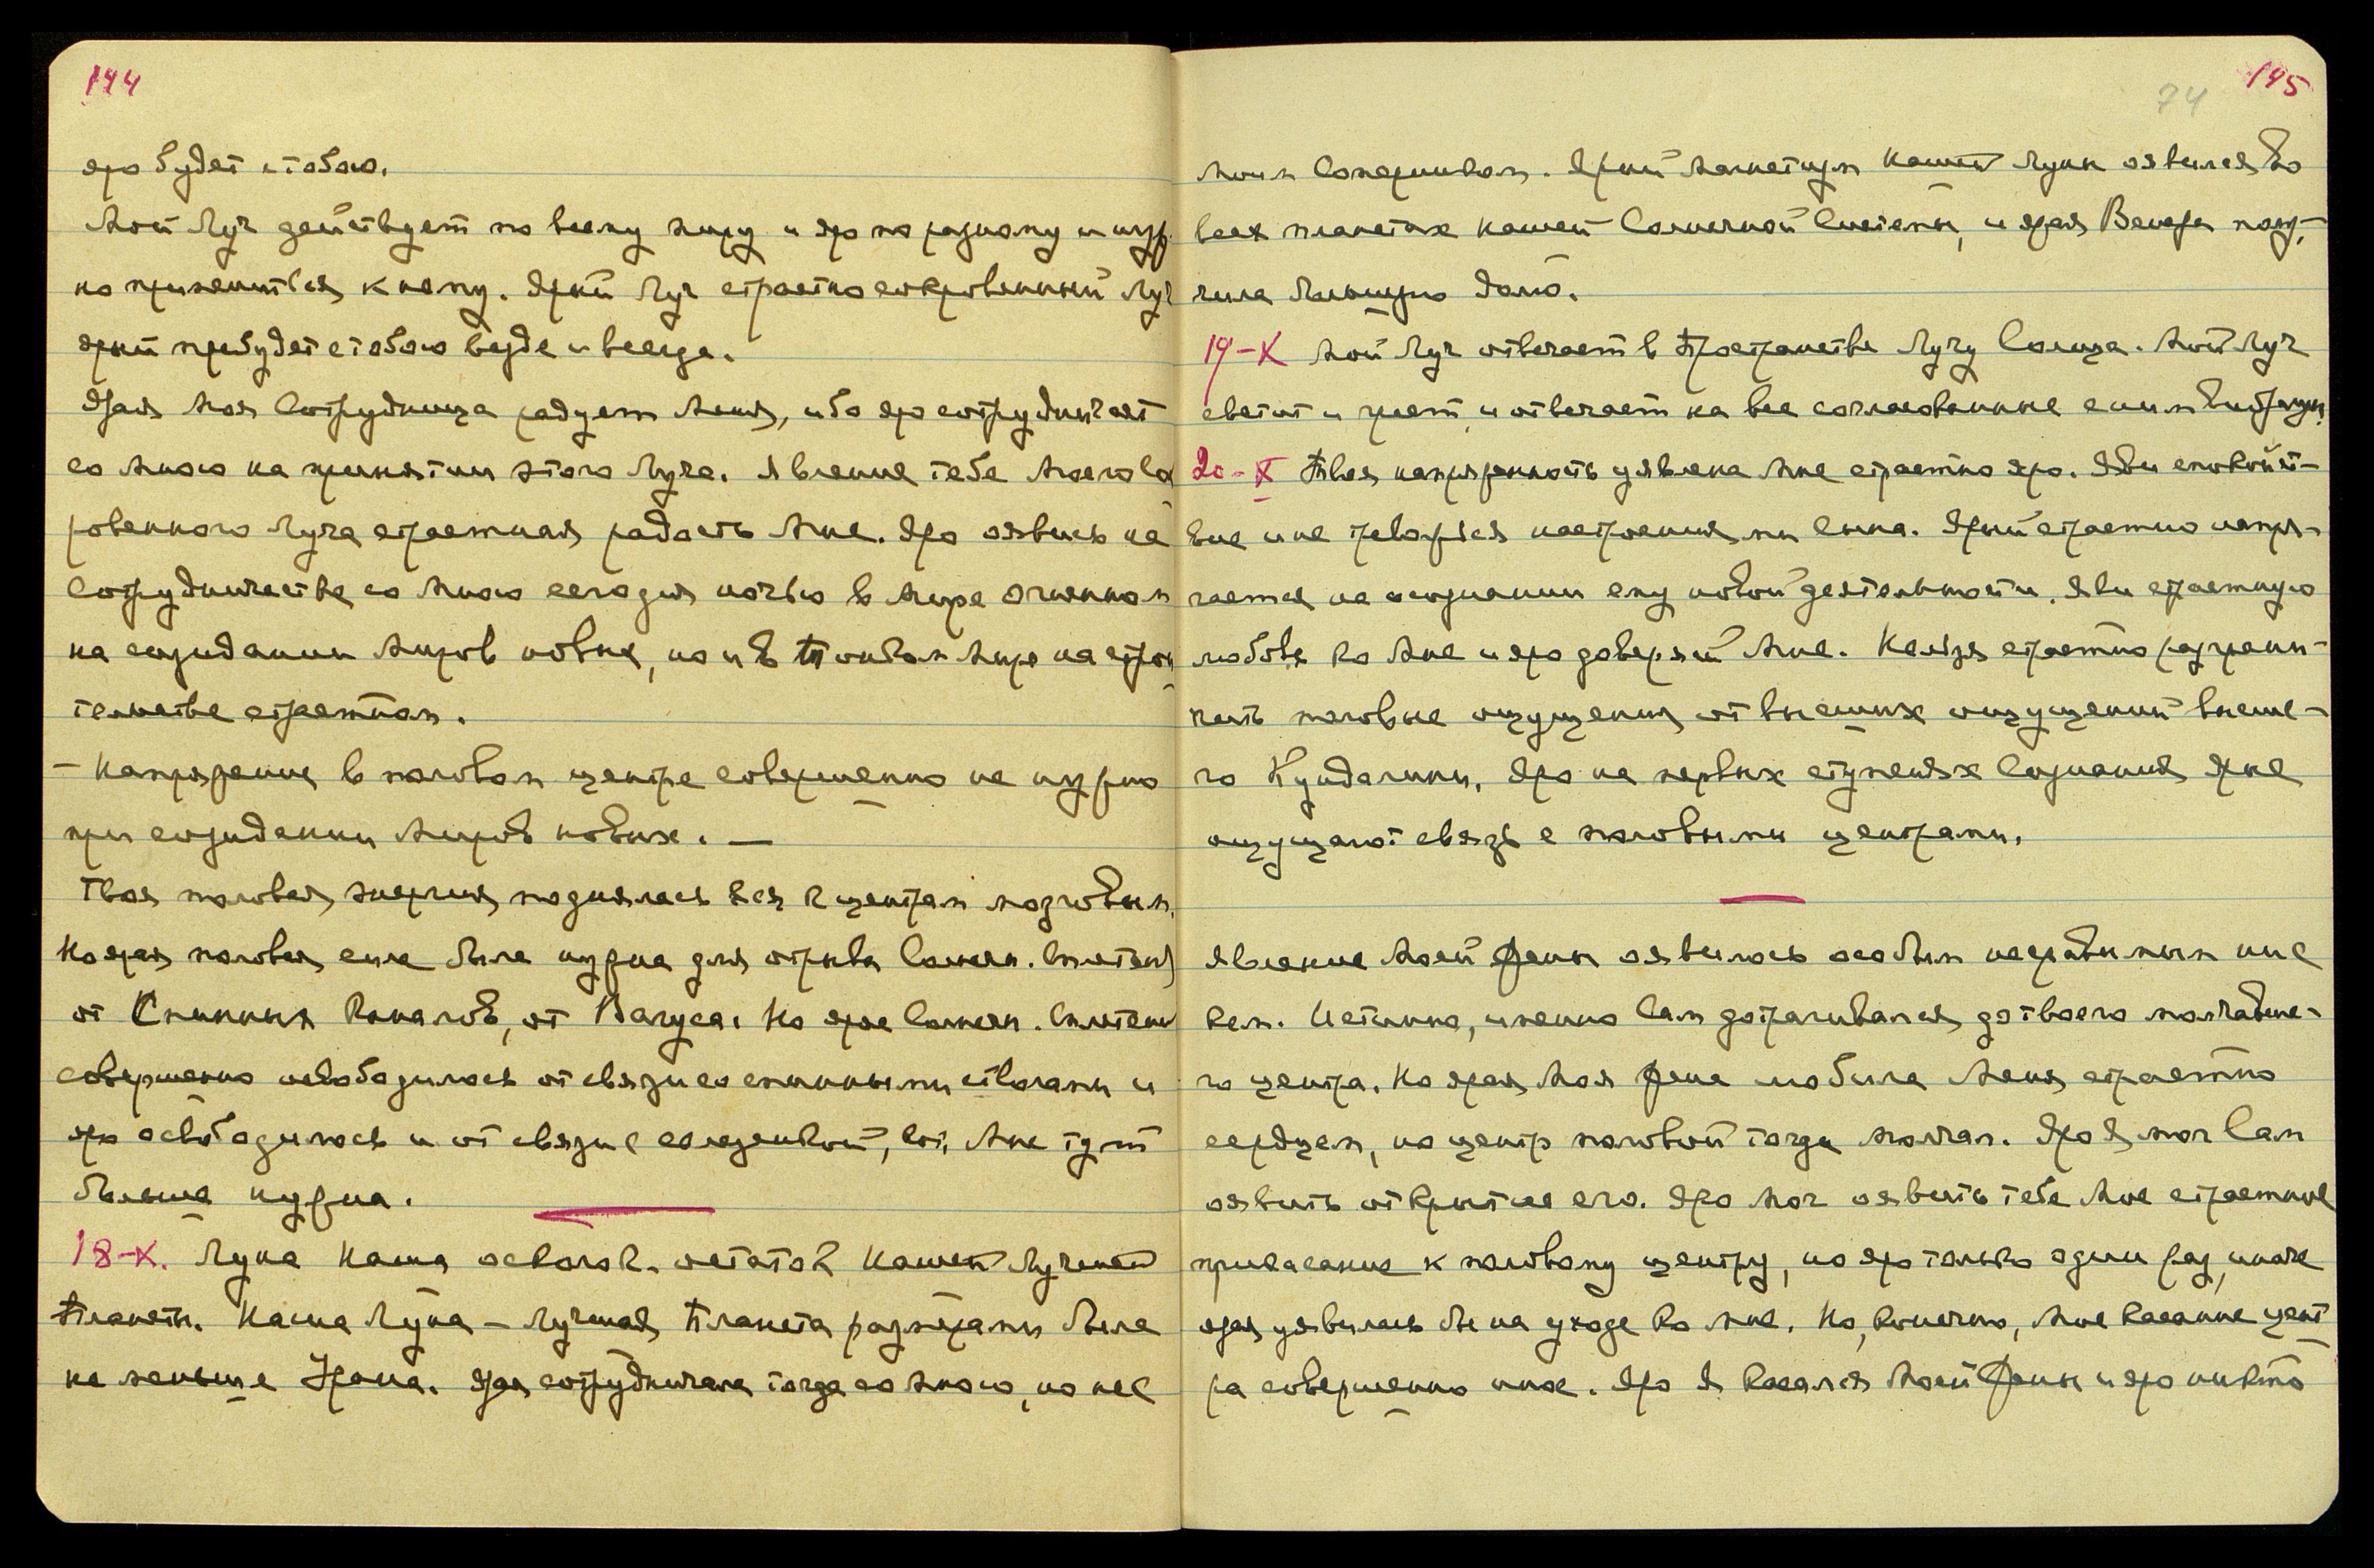 144
яро будет с тобою.
Мой Луч действует по всему миру и яро по разному и нуж
но примениться к нему. Ярый Луч страстно сокровенный Луч
ярый пребудет с тобою везде и всегда.
Ярая Моя Сотрудница радует Меня, ибо яро сотрудничает
со Мною на принятии этого Луча. Явление тебе Моего Со
ровенного Луча страстная радость Мне. Яро явись на
сотрудничестве со Мною сегодня ночью в Мире Огненном
на созидании Миров новых, но и в Тонком Мире на строи
тельстве страстном.
— Напряжение в половом центре совершенно не нужно
при созидании Миров новых. —
Твоя половая энергия поднялась вся к центрам мозговым.
Но ярая половая сила была нужна для отрыва Солнечн. Сплетения
от Спинных Каналов, от Вагуса. Но ярое Солнечн. Сплетение
совершенно освободилось от связи со спинными стволами и
яро освободилось и от связи с селезенкой,
больше нужна.
18-X. Луна Наша осколок, остаток Нашей Лучшей
Планеты. Наша Луна – Лучшая Планета размерами была
не меньше Урана. Ярая сотрудничала тогда со Мною, но не с
74 145
Моим Соперником. Ярый магнетизм Нашей Луны оявился во
всех планетах Нашей Солнечной Системы, и ярая Венера полу-
чила большую долю.
19-X Мой Луч отвечает в Пространстве Лучу Солнца. Мой Луч
светит и греет и отвечает на все согласованные с ним вибрации.
20-X Твоя напряженность уявлена Мне страстно яро. Яви спокойст-
вие и не тревожься настроениями сына. Ярый страстно напря-
гается на осознании ему новой деятельности. Яви страстную
любовь ко Мне и яро доверяй Мне. Нельзя страстно разграни-
чить половые ощущения от высших ощущений высше-
го Кундалини. Яро на первых ступенях Сознания Яные
ощущают связь с половыми центрами.
Явление Моей Жены оявилось особым несравнимым ни с
кем. Истинно, именно Сам дотрагивался до твоего молчавше-
го центра. Но ярая Моя Жена любила Меня страстно
сердцем, но центр половой тогда молчал. Яро Я мог Сам
оявить открытие его. Яро Мог оявить тебе Мое страстное
прикасание к половому центру, но яро только один раз, иначе
ярая уявилась бы на уходе ко Мне. Но, конечно, Мое касание цент
ра совершенно иное. Яро Я касался Моей Жены и яро никто